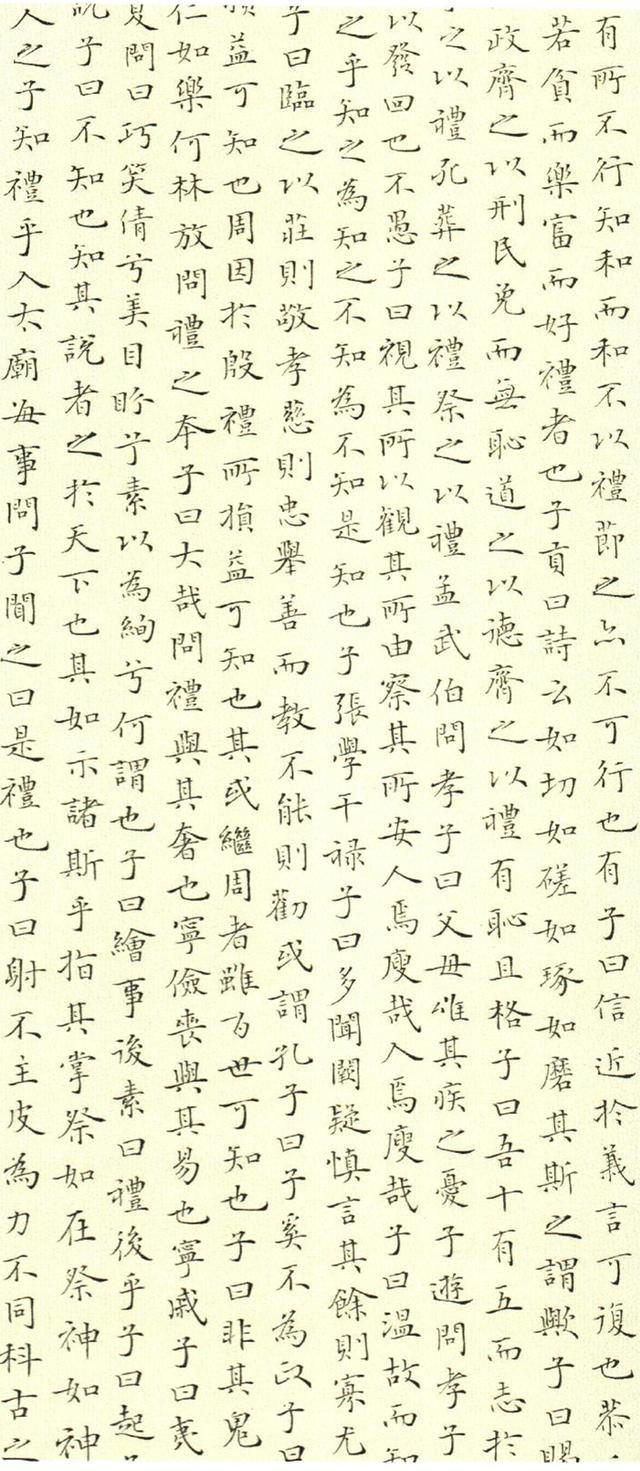 有所不行知和而和不以禮節之亦不可行也有子曰信近於義言可復也恭
若貧而樂富而好禮者也子貢曰詩云如切如磋如琢如磨其斯之謂歟子曰賜
政齊之以刑民免而無恥道之以德齊之以禮有恥且格子曰吾十有五而志於
之以禮死葬之以禮祭之以禮孟武伯問孝子曰父母唯其疾之憂子遊問孝子
以發回也不愚子曰視其所以觀其所由察其所安人焉廋哉人焉廋哉子曰溫故而知
之乎知之為知之不知為不知是知也子張學干祿子曰多聞闕疑慎言其餘則寡尤
子曰臨之以莊則敬孝慈則忠舉善而教不能則勸或謂孔子曰子奚不為政子曰
損益可知也周因於殷禮所損益可知也其或繼周者雖百世可知也子曰非其鬼
仁如樂何林放問禮之本子曰大哉問禮與其奢也寧儉喪與其易也寧戚子曰夷
夏問曰巧笑倩兮美目盼兮素以為絢兮何謂也子曰繪事後素曰禮後乎子曰起
說子曰不知也知其說者之於天下也其如示諸斯乎指其掌祭如在祭神如神
人之子知禮乎入太廟每事問子聞之曰是禮也子曰射不主皮為力不同科古之